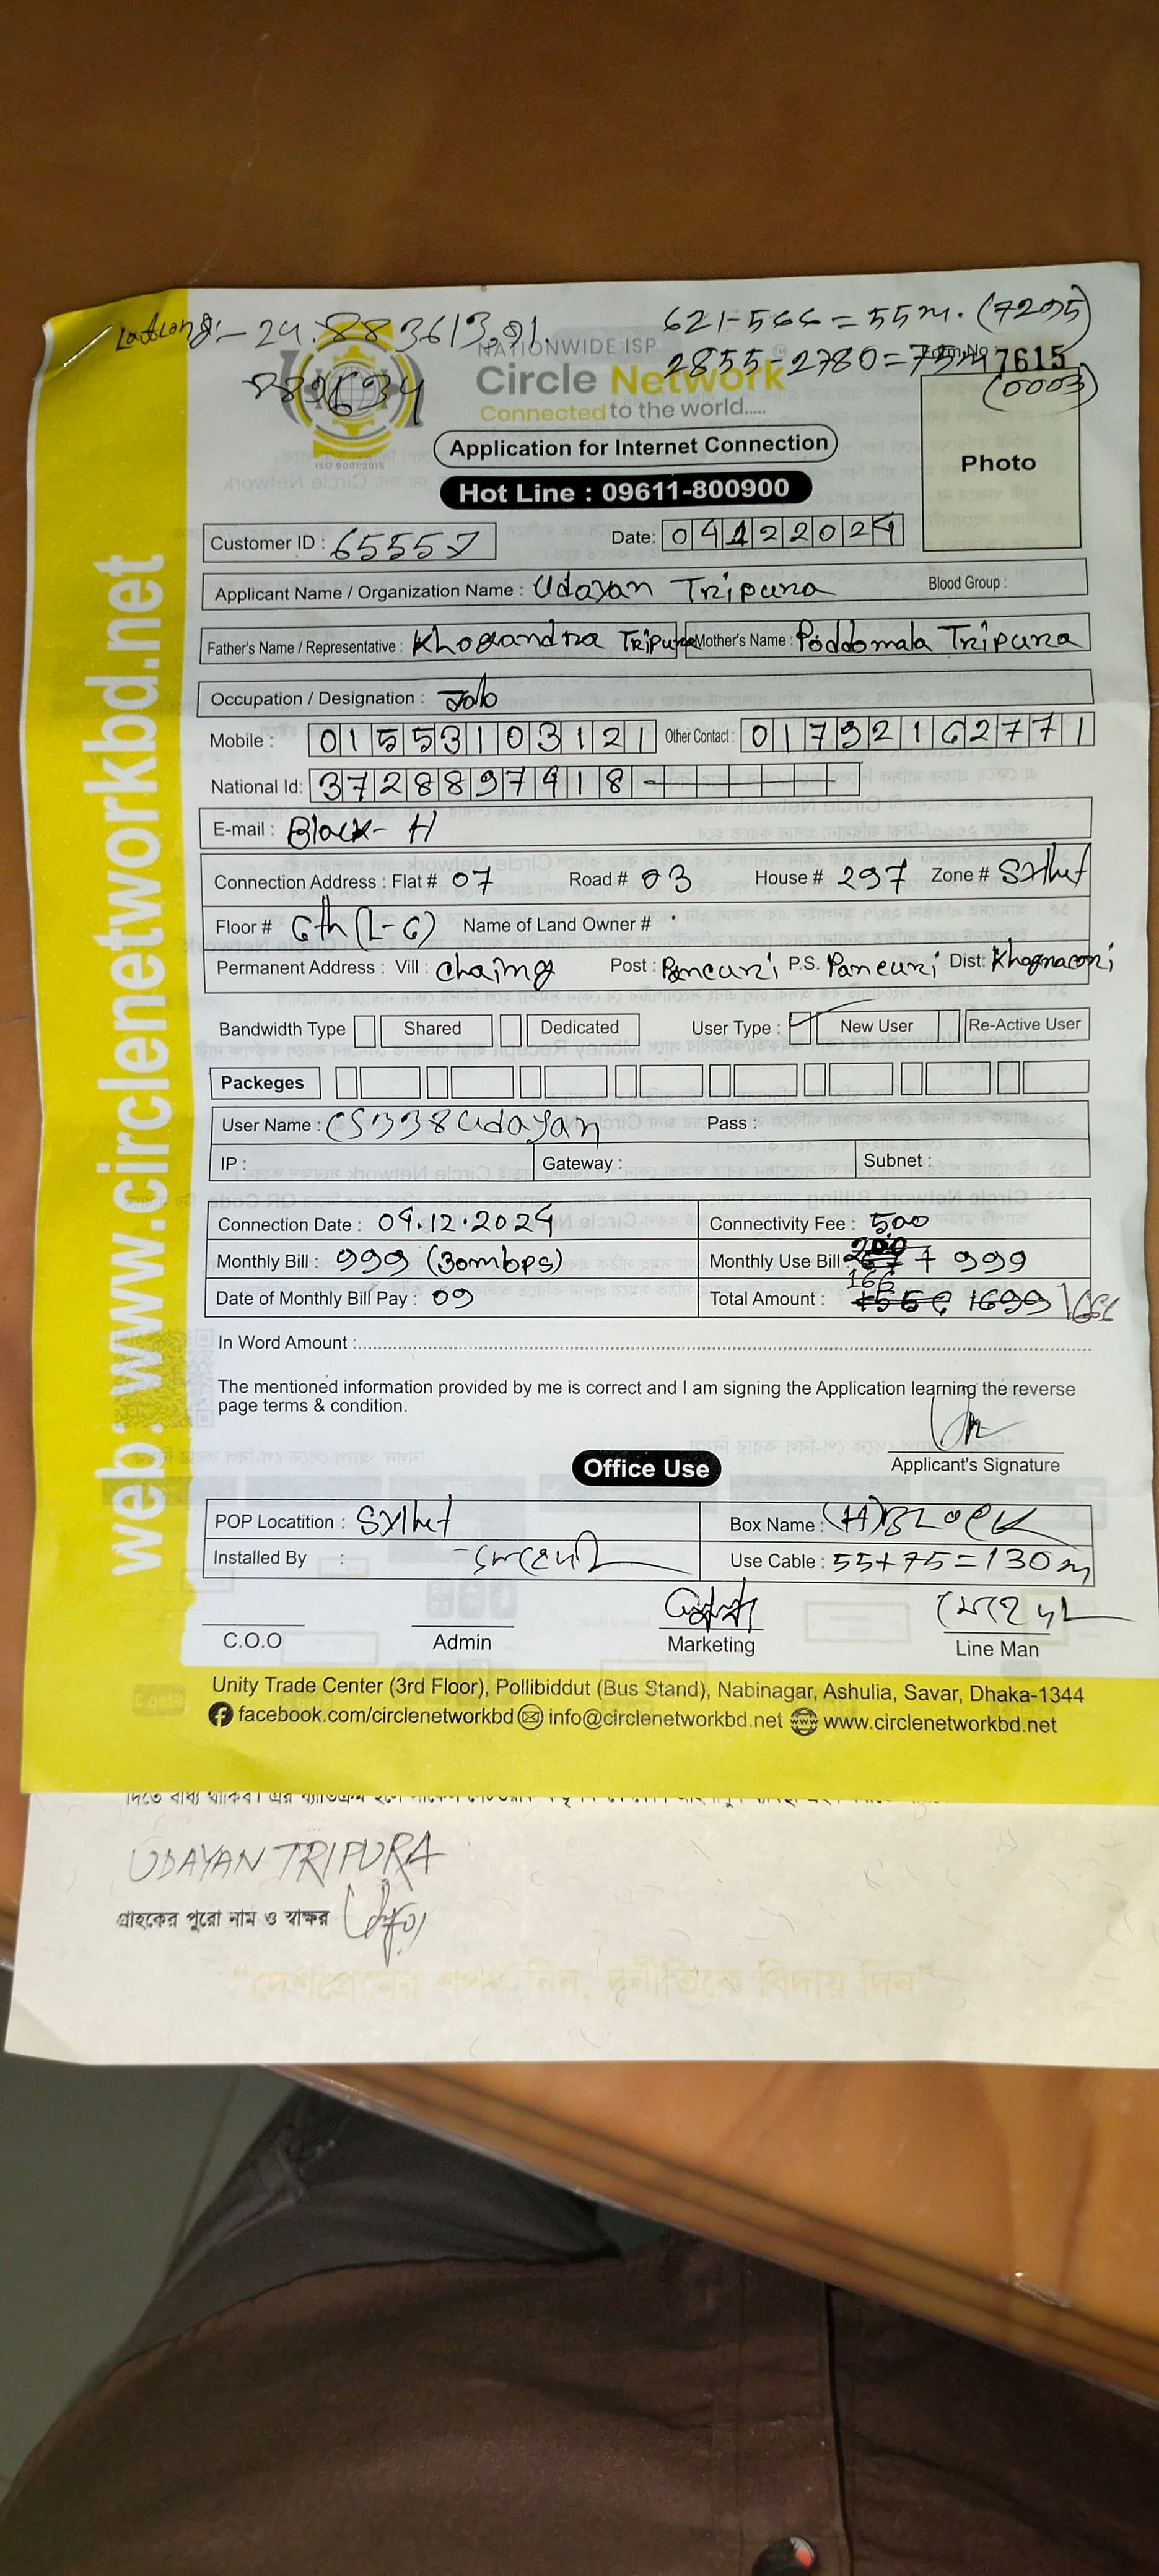 LatLong:- 24.883613,91.
889634
621-566 = 55m. (7295)
2855-2780=75m
(0003)
NATIONWIDE ISP
Circle Network
Connected to the world.....
ISO 9001:2015
7615
Photo
Application for Internet Connection
Hot Line : 09611-800900
Customer ID : 65557
Date: 04122024
Applicant Name / Organization Name : Udayan Tripura Blood Group :
Father's Name / Representative : Khogandra Tripura Mother's Name : Poddomala Tripura
Occupation / Designation : Job
Mobile : 01553103121 Other Contact : 01732162771
National Id: 3728897418-
E-mail : Block- H
Connection Address : Flat # 07 Road # 03 House # 297 Zone # Sylhet
Floor # 6th (L-6) Name of Land Owner #
Permanent Address : Vill : Post : P.S. Dist:
Bandwidth Type Shared Dedicated User Type : New User Re-Active User
Packeges
User Name : CS338Udayan Pass :
IP : Gateway : Subnet :
Connection Date : 04.12.2024 Connectivity Fee : 500
Monthly Bill : 999 (30mbps) Monthly Use Bill 999
Date of Monthly Bill Pay : 09 166 Total Amount : 1699 1666
In Word Amount :
The mentioned information provided by me is correct and I am signing the Application learning the reverse
page terms & condition.
Applicant's Signature
Office Use
POP Locatition : Sylhet Box Name : (H)BLOCK
Installed By : Use Cable : 55+75=130m
C.O.O Admin Marketing Line Man
Unity Trade Center (3rd Floor), Pollibiddut (Bus Stand), Nabinagar, Ashulia, Savar, Dhaka-1344
facebook.com/circlenetworkbd info@circlenetworkbd.net www.circlenetworkbd.net
web: www.circlenetworkbd.net
UDAYAN TRIPURA
গ্রাহকের পুরো নাম ও স্বাক্ষর
“দেশপ্রেমের শপথ নিন, দুর্নীতিকে বিদায় দিন”